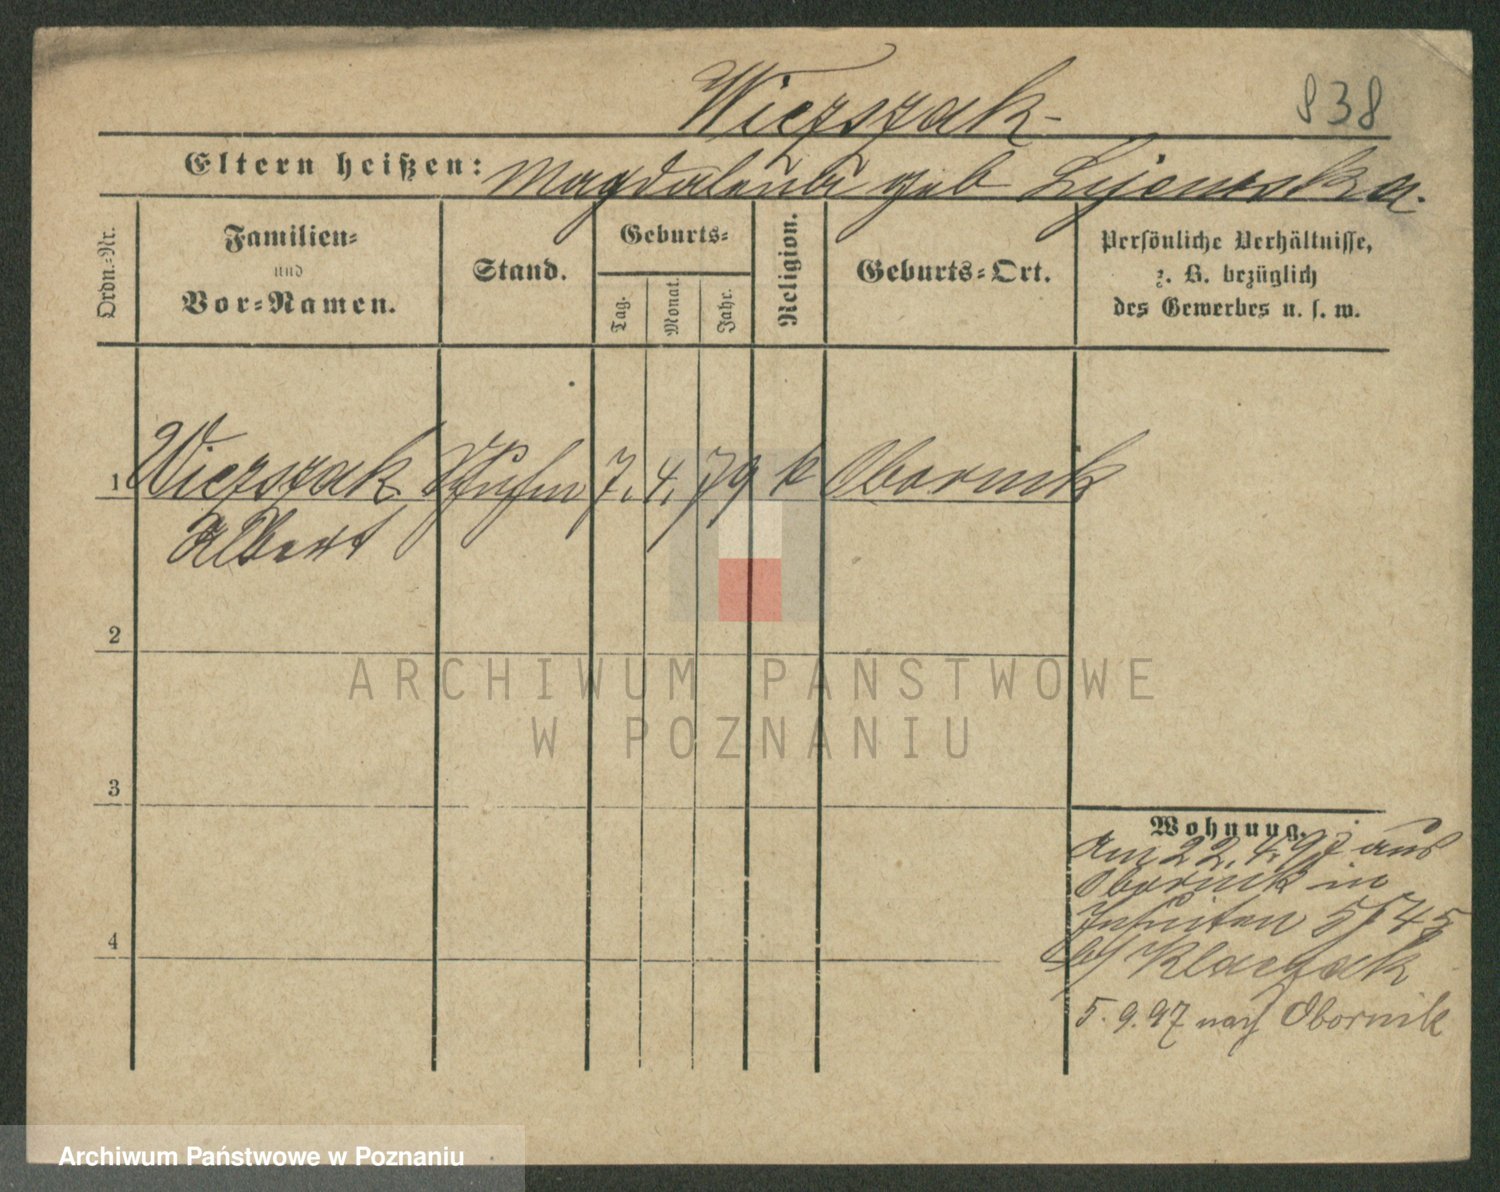 Wiezszak
838
Eltern heißen: Magdalena geb
Ordn.-Nr.
Familien-
und
Vor-Namen.
Stand.
Geburts-
Tag.
Monat.
Jahr.
Religion.
Geburts-Ort.
Persönliche Verhältnisse,
z. B. bezüglich
des Gewerbes u. s. w.
1 Wiezszak 7. 4. 79 k Obornik
Albert
2
3
4
Wohnung.
Am 22. 4. 97 aus
Obornik in
b/
5. 9. 97 nach Obornik
ARCHIWUM PAŃSTWOWE
W POZNANIU
Archiwum Państwowe w Poznaniu